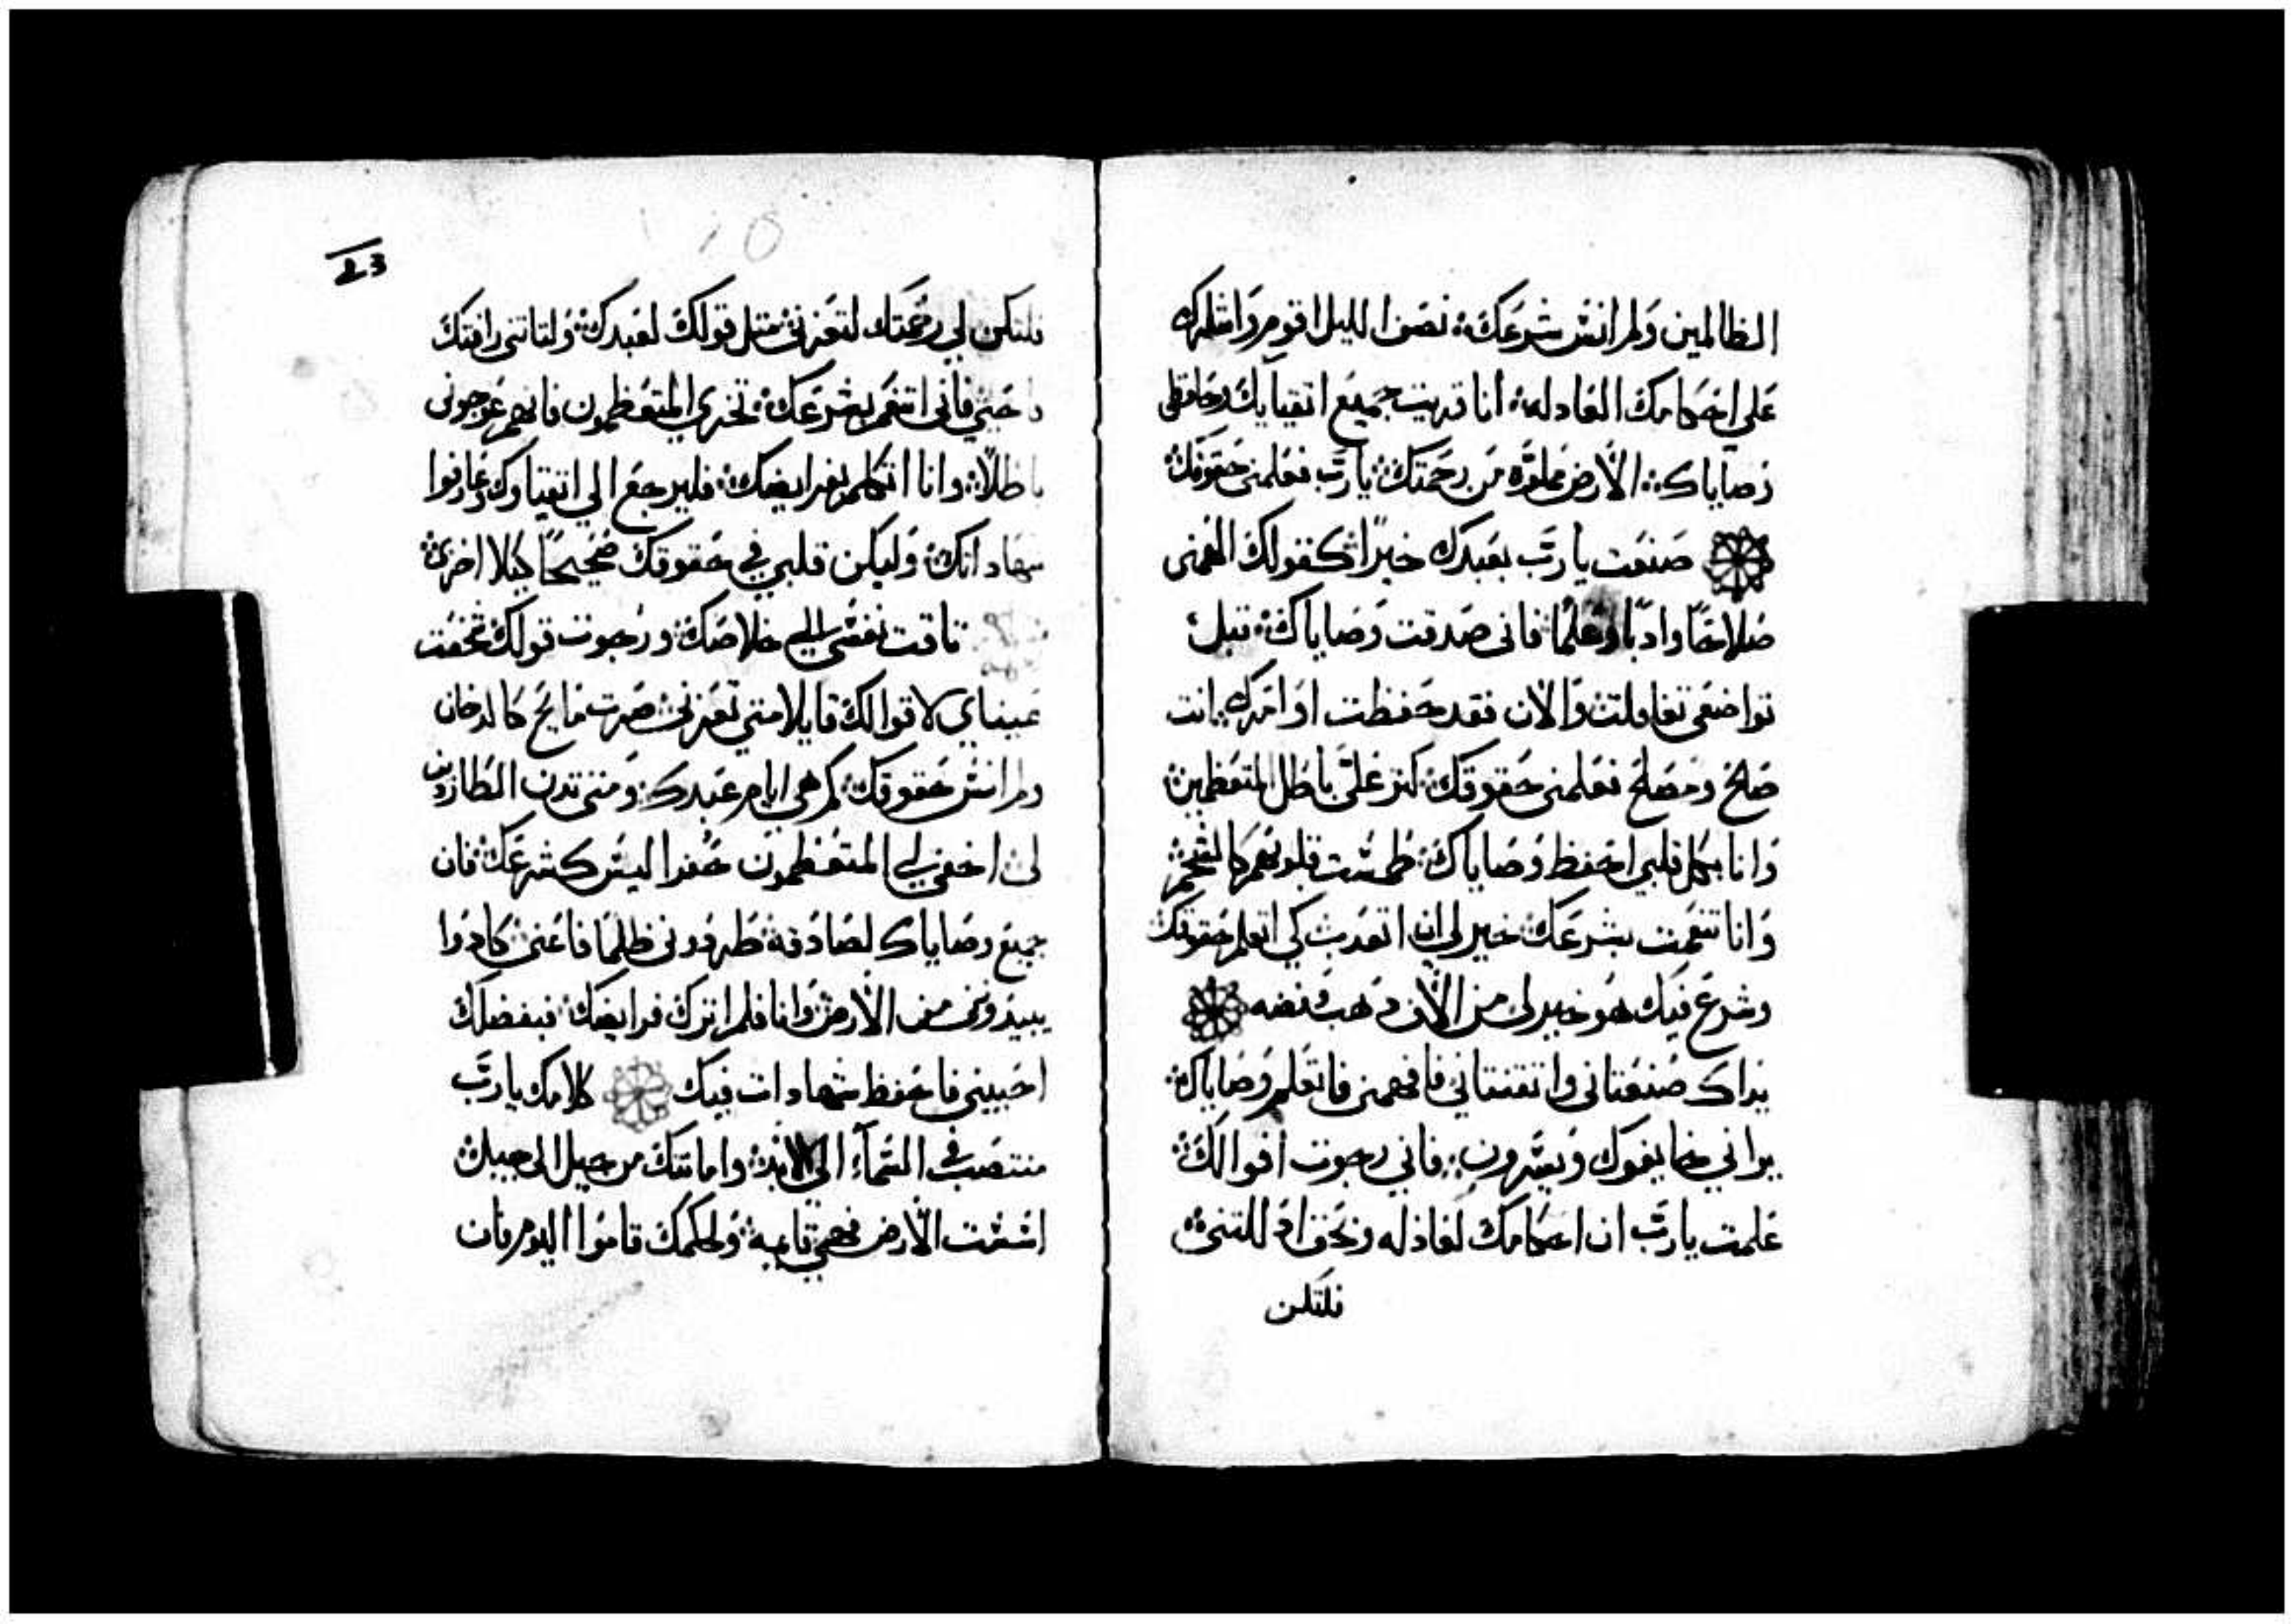 الظالمين ولم انس شرعك نصف الليل اقوم واشكرك
علي احكامك العادله انا قريت جميع اتقيايك وحافظي
وصاياك الارض مملوه من رحمتك يارب فعلمني حقوقك
صنعت يارب بعبدك خيرًا كقولك الهمني
صلاحًا وادبًا وعلمًا فاني صدقت وصاياك قبل
تواضعي تغافلت والان فقد حفظت اوامرك انت
صالح ومصلح فعلمني حقوقك كثر علي باطل المتعظمين
وانا بكل قلبي احفظ وصاياك طمست قلوبهم كالشحم
وانا تنعمت بشرعك خير لي ان اتعدب كي اتعلم حقوقك
وشرع فيك هو خير لي من الاف دهب وفضه
يداك صنعتاني واتقنتاني فافهمني فاتعلم وصاياك
يراني خايفوك ويسرون فاني رجوت اقوالك
علمت يارب ان احكامك لعادله وبحق ادللتني
فلتكن
23
فلتكن لي رحمتك لتعزني متل قولك لعبدك ولتاتني رافتك
فاحيي فاني اتنعم بشرعك تخزي المتعظمون فانهم عوجوني
باطلًا وانا اتكلم بفرايضك فليرجع الي اتقياوك وعارفوا
شهاداتك وليكن قلبي في حقوقك صحيحًا كيلا اخزي
تاقت نفسي الي خلاصك ورجوت قولك شخصت
عيناي لاقوالك قايلا متي تعزني صرت مايح كالدخان
ولم انس حقوقك كم هي ايام عبدك ومتي تدن الطاردين
لي اخفي لي المتعظمون حفرا ليس كشرعك فان
جميع وصاياك لصادقه طردوني ظلمًا فاعني كادوا
يبيدوني من الارض وانا فلم اترك فرايضك فبفضلك
احييني فاحفظ شهادات فيك كلامك يارب
منتصب في السماء الي الابد وامانتك من جيل الي جيل
اسست الارض فهي تابته ولحكمك قاموا اليوم فان